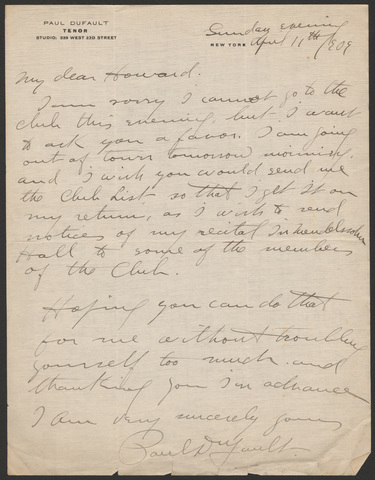 PAUL DUFAULT
TENOR
STUDIO: 339 WEST 23D STREET
Sunday evening
NEW YORK April 11th/1909
My dear Howard.
I am sorry I cannot go to the
club this evening, but I want
to ask you a favor. I am going
out of town tomorrow morning,
and I wish you would send me
the Club List so that I get it on
my return, as I wish to send
notices of my recital in Mendelssohn
Hall to some of the members
of the Club.
Hoping you can do that
for me without troubling
yourself too much and
thanking you in advance
I am very sincerely yours
Paul Dufault.